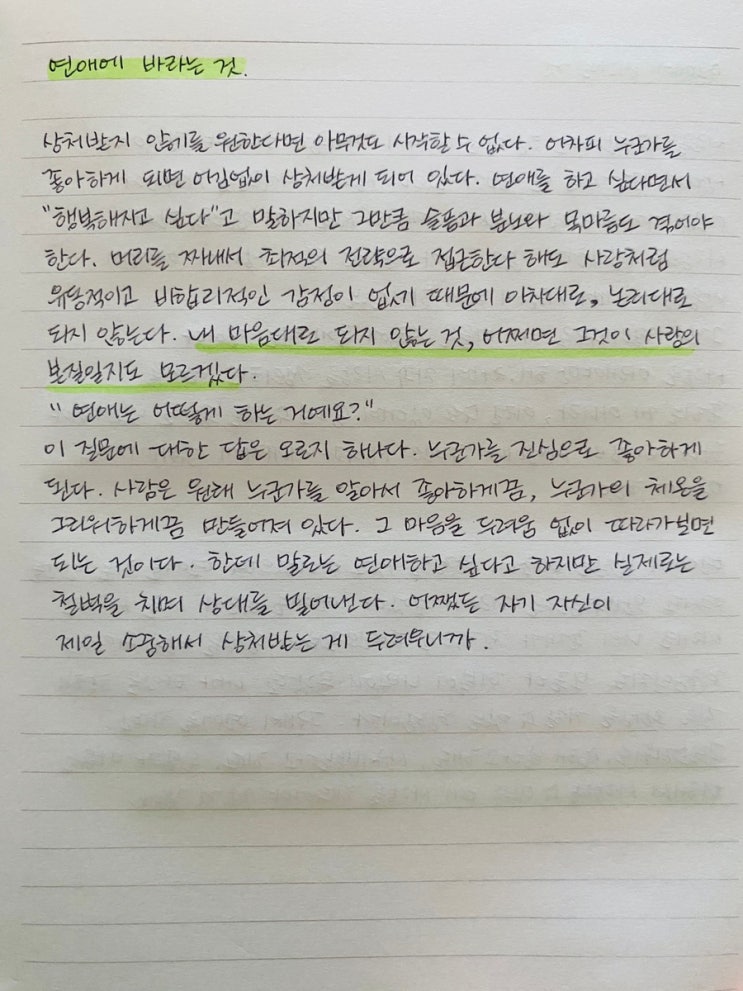 연애에 바라는 것.
상처받지 않기를 원한다면 아무것도 시작할 수 없다. 어차피 누군가를
좋아하게 되면 어김없이 상처받게 되어 있다. 연애를 하고 싶다면서
"행복해지고 싶다"고 말하지만 그만큼 슬픔과 분노와 목마름도 겪어야
한다. 머리를 짜내서 최적의 전략으로 접근한다 해도 사랑처럼
유동적이고 비합리적인 감정이 없기 때문에 이차대로, 논리대로
되지 않는다. 내 마음대로 되지 않는 것, 어쩌면 그것이 사랑의
본질일지도 모르겠다.
" 연애는 어떻게 하는 거예요?"
이 질문에 대한 답은 오로지 하나다. 누군가를 진심으로 좋아하게
된다. 사람은 원래 누군가를 알아서 좋아하게끔, 누군가의 체온을
그리워하게끔 만들어져 있다. 그 마음을 두려움 없이 따라가보면
되는 것이다. 한데 말로는 연애하고 싶다고 하지만 실제로는
철벽을 치며 상대를 밀어낸다. 어쨌든 자기 자신이
제일 소중해서 상처받는 게 두려우니까.